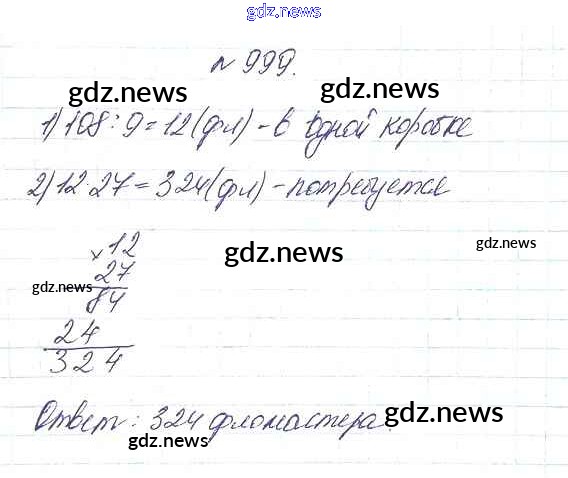 gdz.news
№ 999.
gdz.news gdz.news
1) 108 : 9 = 12 (фл) - в одной коробке
2) 12 · 27 = 324 (фл) - потребуется
× 12
27
84
24
324
gdz.news gdz.news gdz.news
Ответ: 324 фломастера.
gdz.news gdz.news